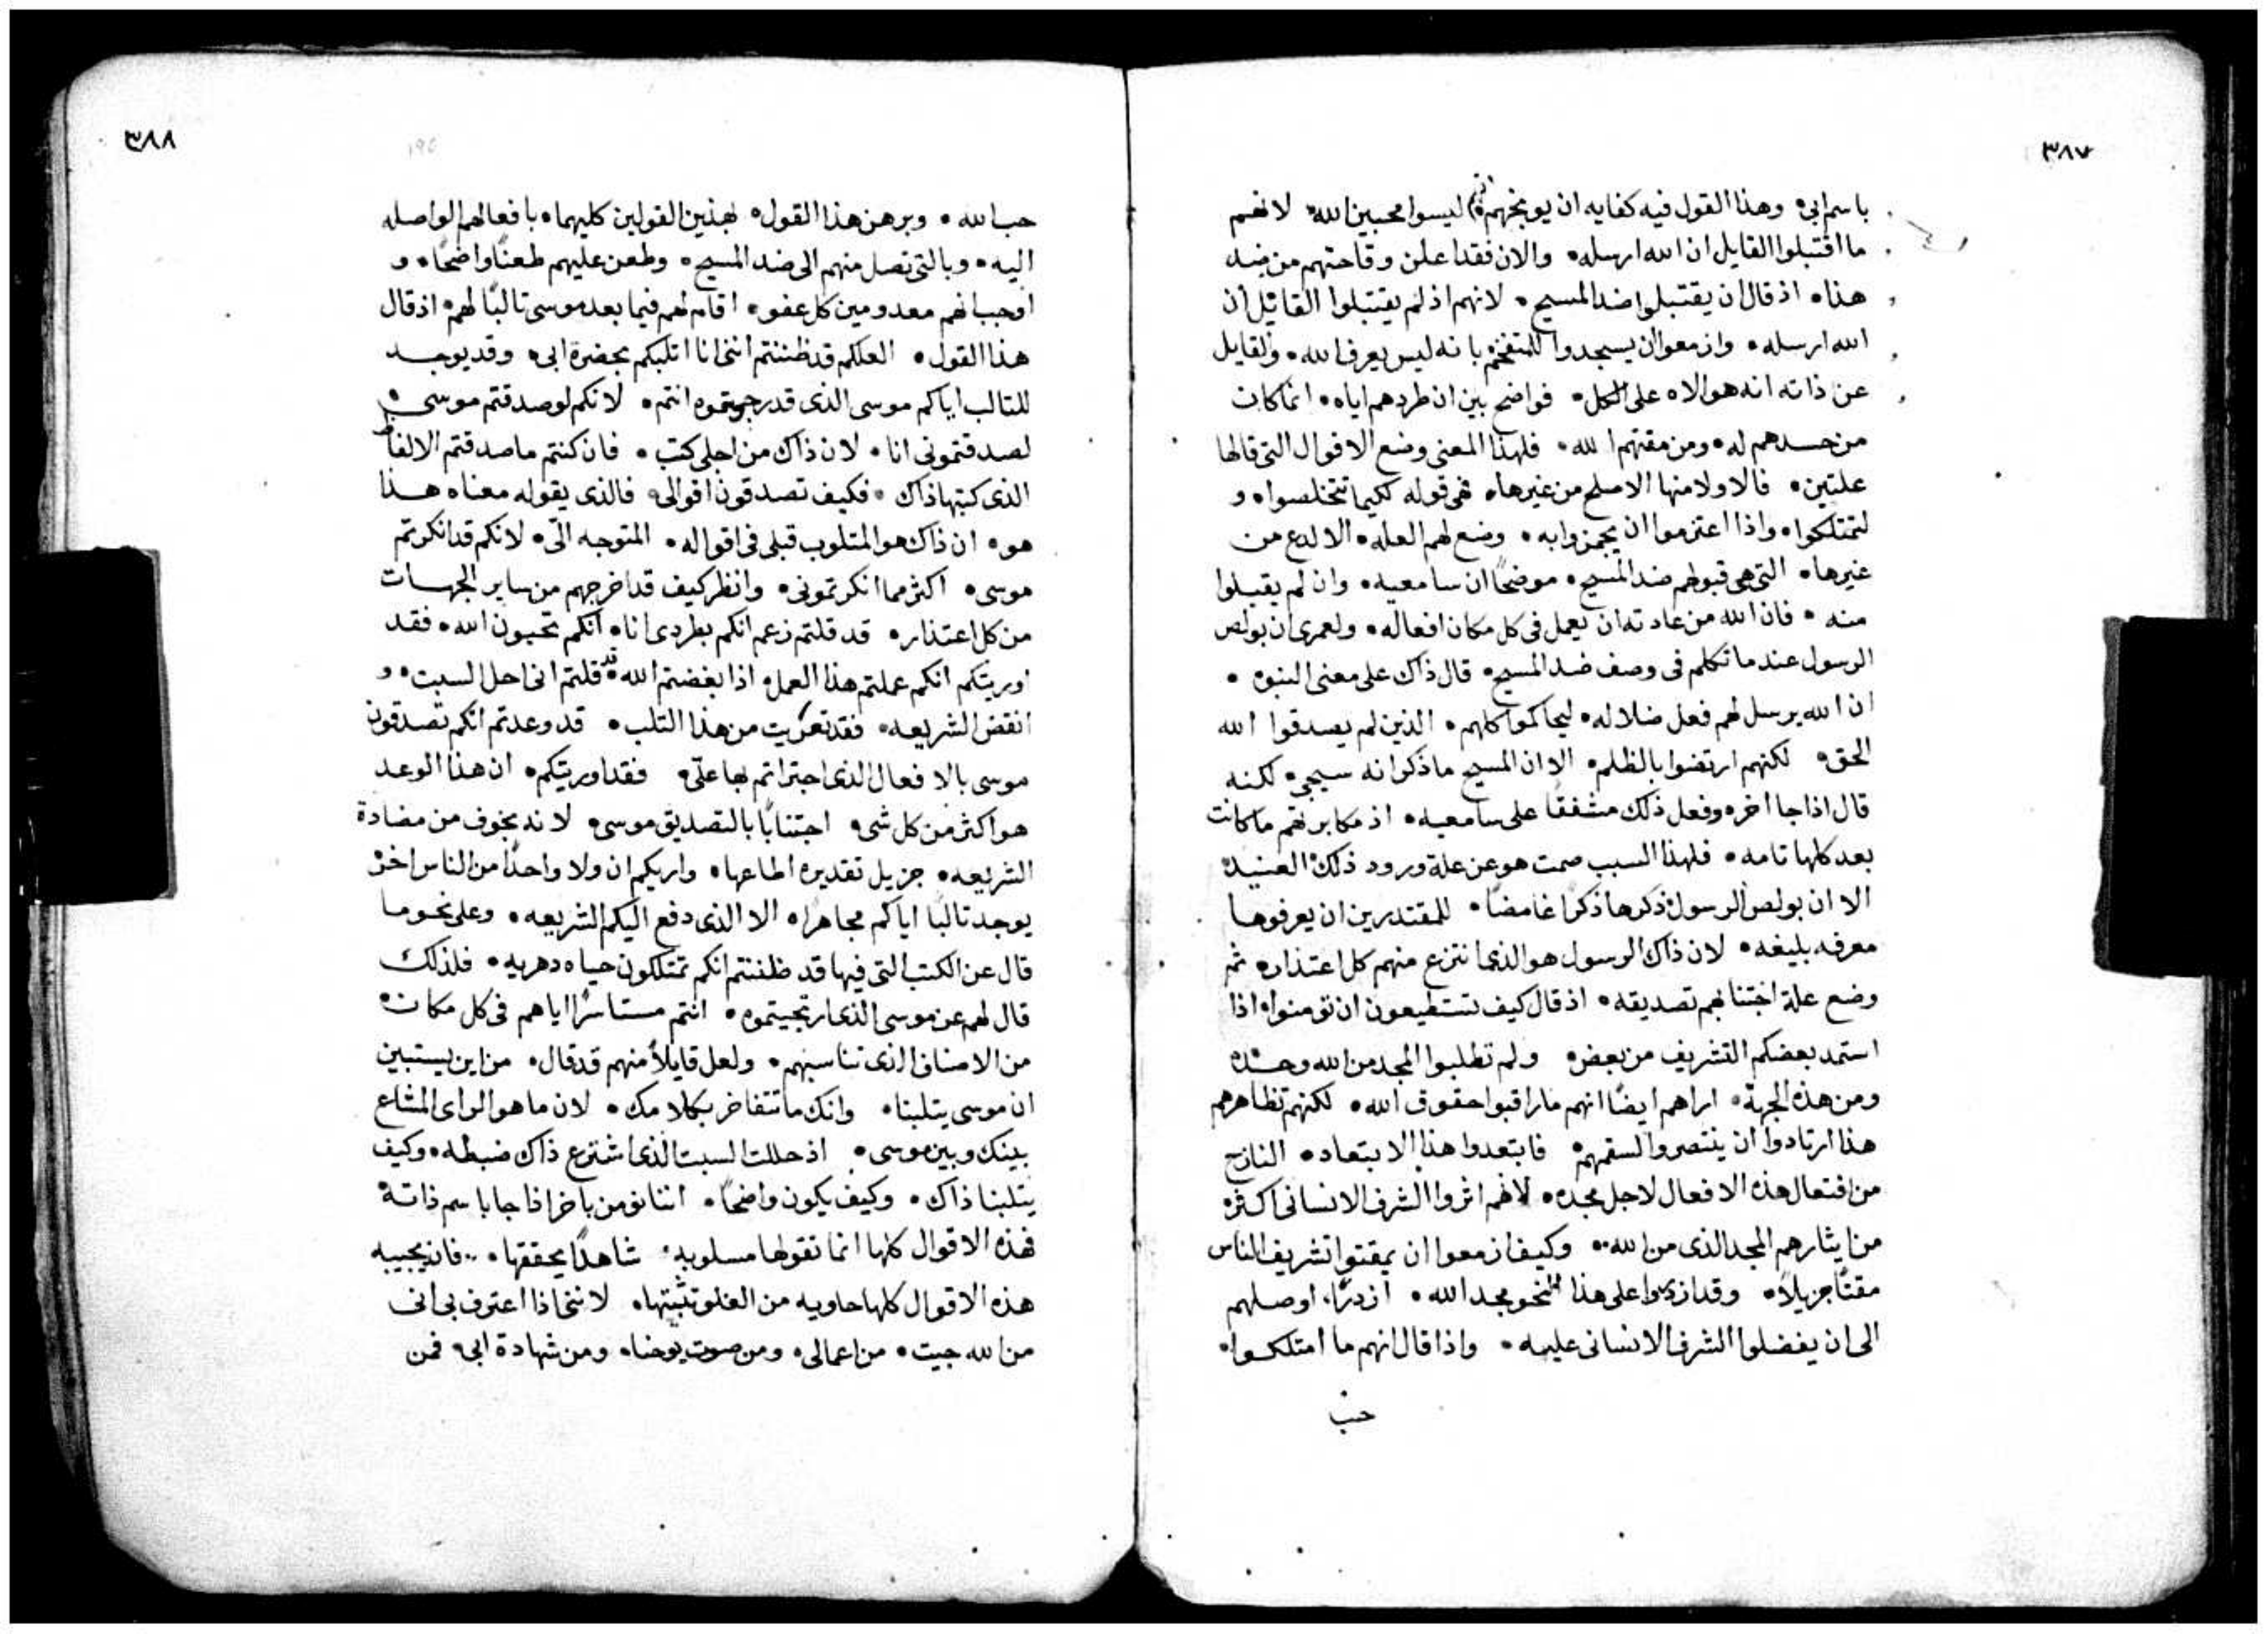 ٣٨٧
باسم ابى• وهذا القول فيه كفايه ان يوبخهم انهم ليسوا محبين الله• لانهم
ما اقتبلوا القايل ان الله ارسله• والان فقد اعلن وقاحتهم من ضد
هذا• اذ قال ان يقتبلوا ضد المسيح• لانهم اذ لم يقتبلوا القائل ان
الله ارسله• وازمعوا ان يسجدوا للمتفخم بانه ليس يعرف الله• والقايل
عن ذاته انه هو الاه على الكل• فواضح بين ان طردهم اياه• انما كان
من حسدهم له• ومن مقتهم الله• فلهذا المعنى وضع الاقوال التى قالها
علتين• فالاولا منها الاصلح من غيرها• فهى قوله لكيما تتخلصوا• و
لتمتلكوا• واذا اعتزموا ان يجمزوا به• وضع لهم العله• الالدع من
غيرها• التى هى قبولهم ضد المسيح• موضحًا ان سامعيه• وان لم يقبلوا
منه• فان الله من عادته ان يعمل فى كل مكان افعاله• ولعمرى ان بولص
الرسول عندما تكلم فى وصف ضد المسيح• قال ذاك على معنى النبوه•
ان الله يرسل لهم فعل ضلاله• ليحاكموا كلهم• الذين لم يصدقوا الله
الحق• لكنهم ارتضوا بالظلم• الا ان المسيح ما ذكر انه سيجى• لكنه
قال اذا جا اخر• وفعل ذلك مشفقًا على سامعيه• اذ مكابرتهم ما كانت
بعد كلها تامه• فلهذا السبب صمت هو عن علة ورود ذلك العنيد•
الا ان بولص الرسول ذكرها ذكرًا غامضًا• للمقتدرين ان يعرفوها
معرفه بليغه• لان ذاك الرسول هو الذى انتزع منهم كل اعتذار• ثم
وضع علة اجتنابهم تصديقه• اذ قال كيف تستطيعون ان تومنوا• اذا
استمد بعضكم التشريف من بعض• ولم تطلبوا المجد من الله وحده
ومن هذه الجهة• اراهم ايضًا انهم ما راقبوا حقوق الله• لكنهم تظاهرهم
هذا ارتادوا ان ينتصروا لسقمهم• فابتعدوا هذا الابتعاد• النازح
من افتعال هذه الافعال لاجل مجده• لانهم اثروا الشرف الانسانى اكثر•
من ايثارهم المجد الذى من الله•• وكيف ازمعوا ان يمقتوا تشريف الناس
مقتًا جزيلاً• وقد ازدروا على هذا النحو مجد الله• ازدرًا، اوصلهم
الى ان يفضلوا الشرف الانسانى عليه• واذا قال انهم ما امتلكوا•
حب
٣٨٨
حب الله• وبرهن هذا القول• بهذين القولين كليهما• بافعالهم الواصله
اليه• وبالتى تصل منهم الى ضد المسيح• وطعن عليهم طعنًا واضحًا• و
اوجب انهم معدومين كل عفو• اقام لهم فيما بعد موسى تالبًا لهم• اذ قال
هذا القول• العلكم قد ظننتم اننى انا اتلبكم بحضرة ابى• وقد يوجد
للتالب اياكم موسى الذى قد رجوتموه انتم• لانكم لو صدقتم موسى•
لصدقتمونى انا• لان ذاك من اجلى كتب• فان كنتم ما صدقتم الالفاظ
الذى كتبها ذاك• فكيف تصدقون اقوالى• فالذى يقوله معناه هذا
هو• ان ذاك هو المتلوب قبلى فى اقواله• المتوجه الىّ• لانكم قد انكرتم
موسى• اكثر مما انكرتمونى• وانظر كيف قد اخرجهم من ساير الجهات
من كل اعتذار• قد قلتم زعم انكم بطردى انا• انكم تحبون الله• فقد
اوريتكم انكم عملتم هذا العمل اذ ابغضتم الله• قد قلتم انى احل السبت• و
انقض الشريعه• فقد تعريت من هذا التلب• قد وعدتم انكم تصدقون
موسى بالافعال الذى اجتراتم بها علىّ• فقد اوريتكم• ان هذا الوعد
هو اكثر من كل شى• اجتنابًا بالتصديق موسى• لانه بخوف من مضادة
الشريعه• جزيل تقديره اطاعها• واريكم ان ولا واحدًا من الناس اخر
يوجد تالبًا اياكم مجاهرًا• الا الذى دفع اليكم الشريعه• وعلى نحو ما
قال عن الكتب التى فيها قد ظننتم انكم تمتلكون حياه دهريه• فلذلك
قال لهم عن موسى الذى ارتجيتموه• انتم مستاسرًا اياهم فى كل مكان•
من الاصناف الذى تناسبهم• ولعل قايلاً منهم قد قال• من اين يستبين
ان موسى يتلبنا• وانك ما تتفاخر بكلامك• لان ما هو الراى المشاع
بينك وبين موسى• اذ حللت السبت الذى اشترع ذاك ضبطه• وكيف
يتلبنا ذاك• وكيف يكون واضحًا• اننا نومن باخر اذا جا باسم ذاته•
فهذه الاقوال كلها انما تقولها مسلوبه• شاهدًا يحققها•• فان يجيبه
هذه الاقوال كلها حاويه من العلو تثبتها• لاننى اذا اعترف بى انى
من الله جيت• من اعمالى• ومن صوت يوحنا• ومن شهادة ابى• فمن